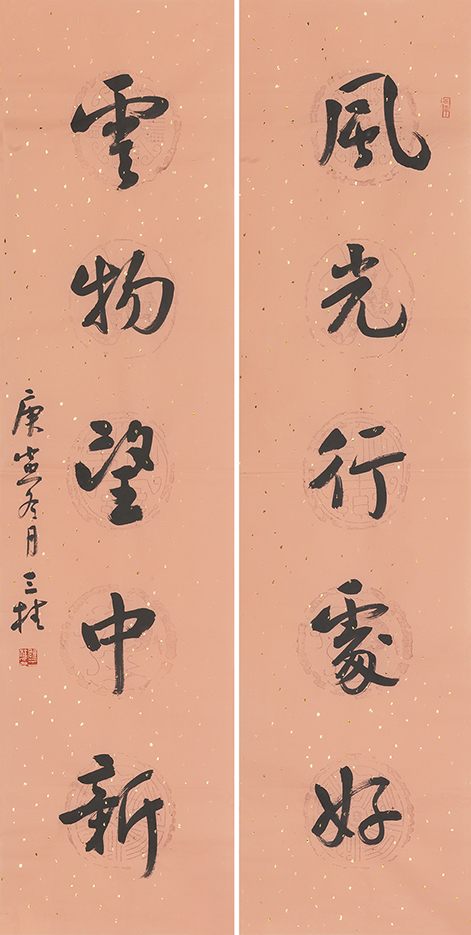 風光行處好
雲物望中新
庚寅冬月三桂